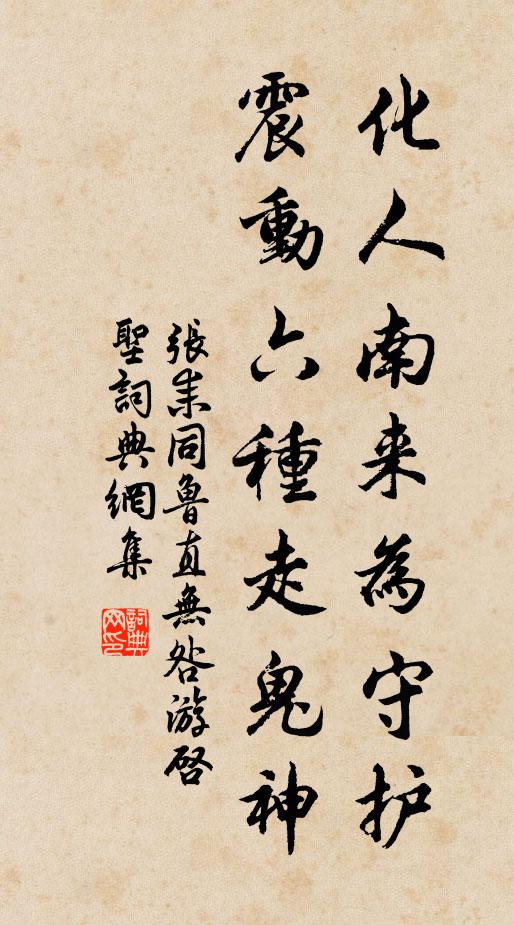 化人南来為守护
震動六種走鬼神
張耒同魯直無咎游啓
聖詞典網集
詞典网印